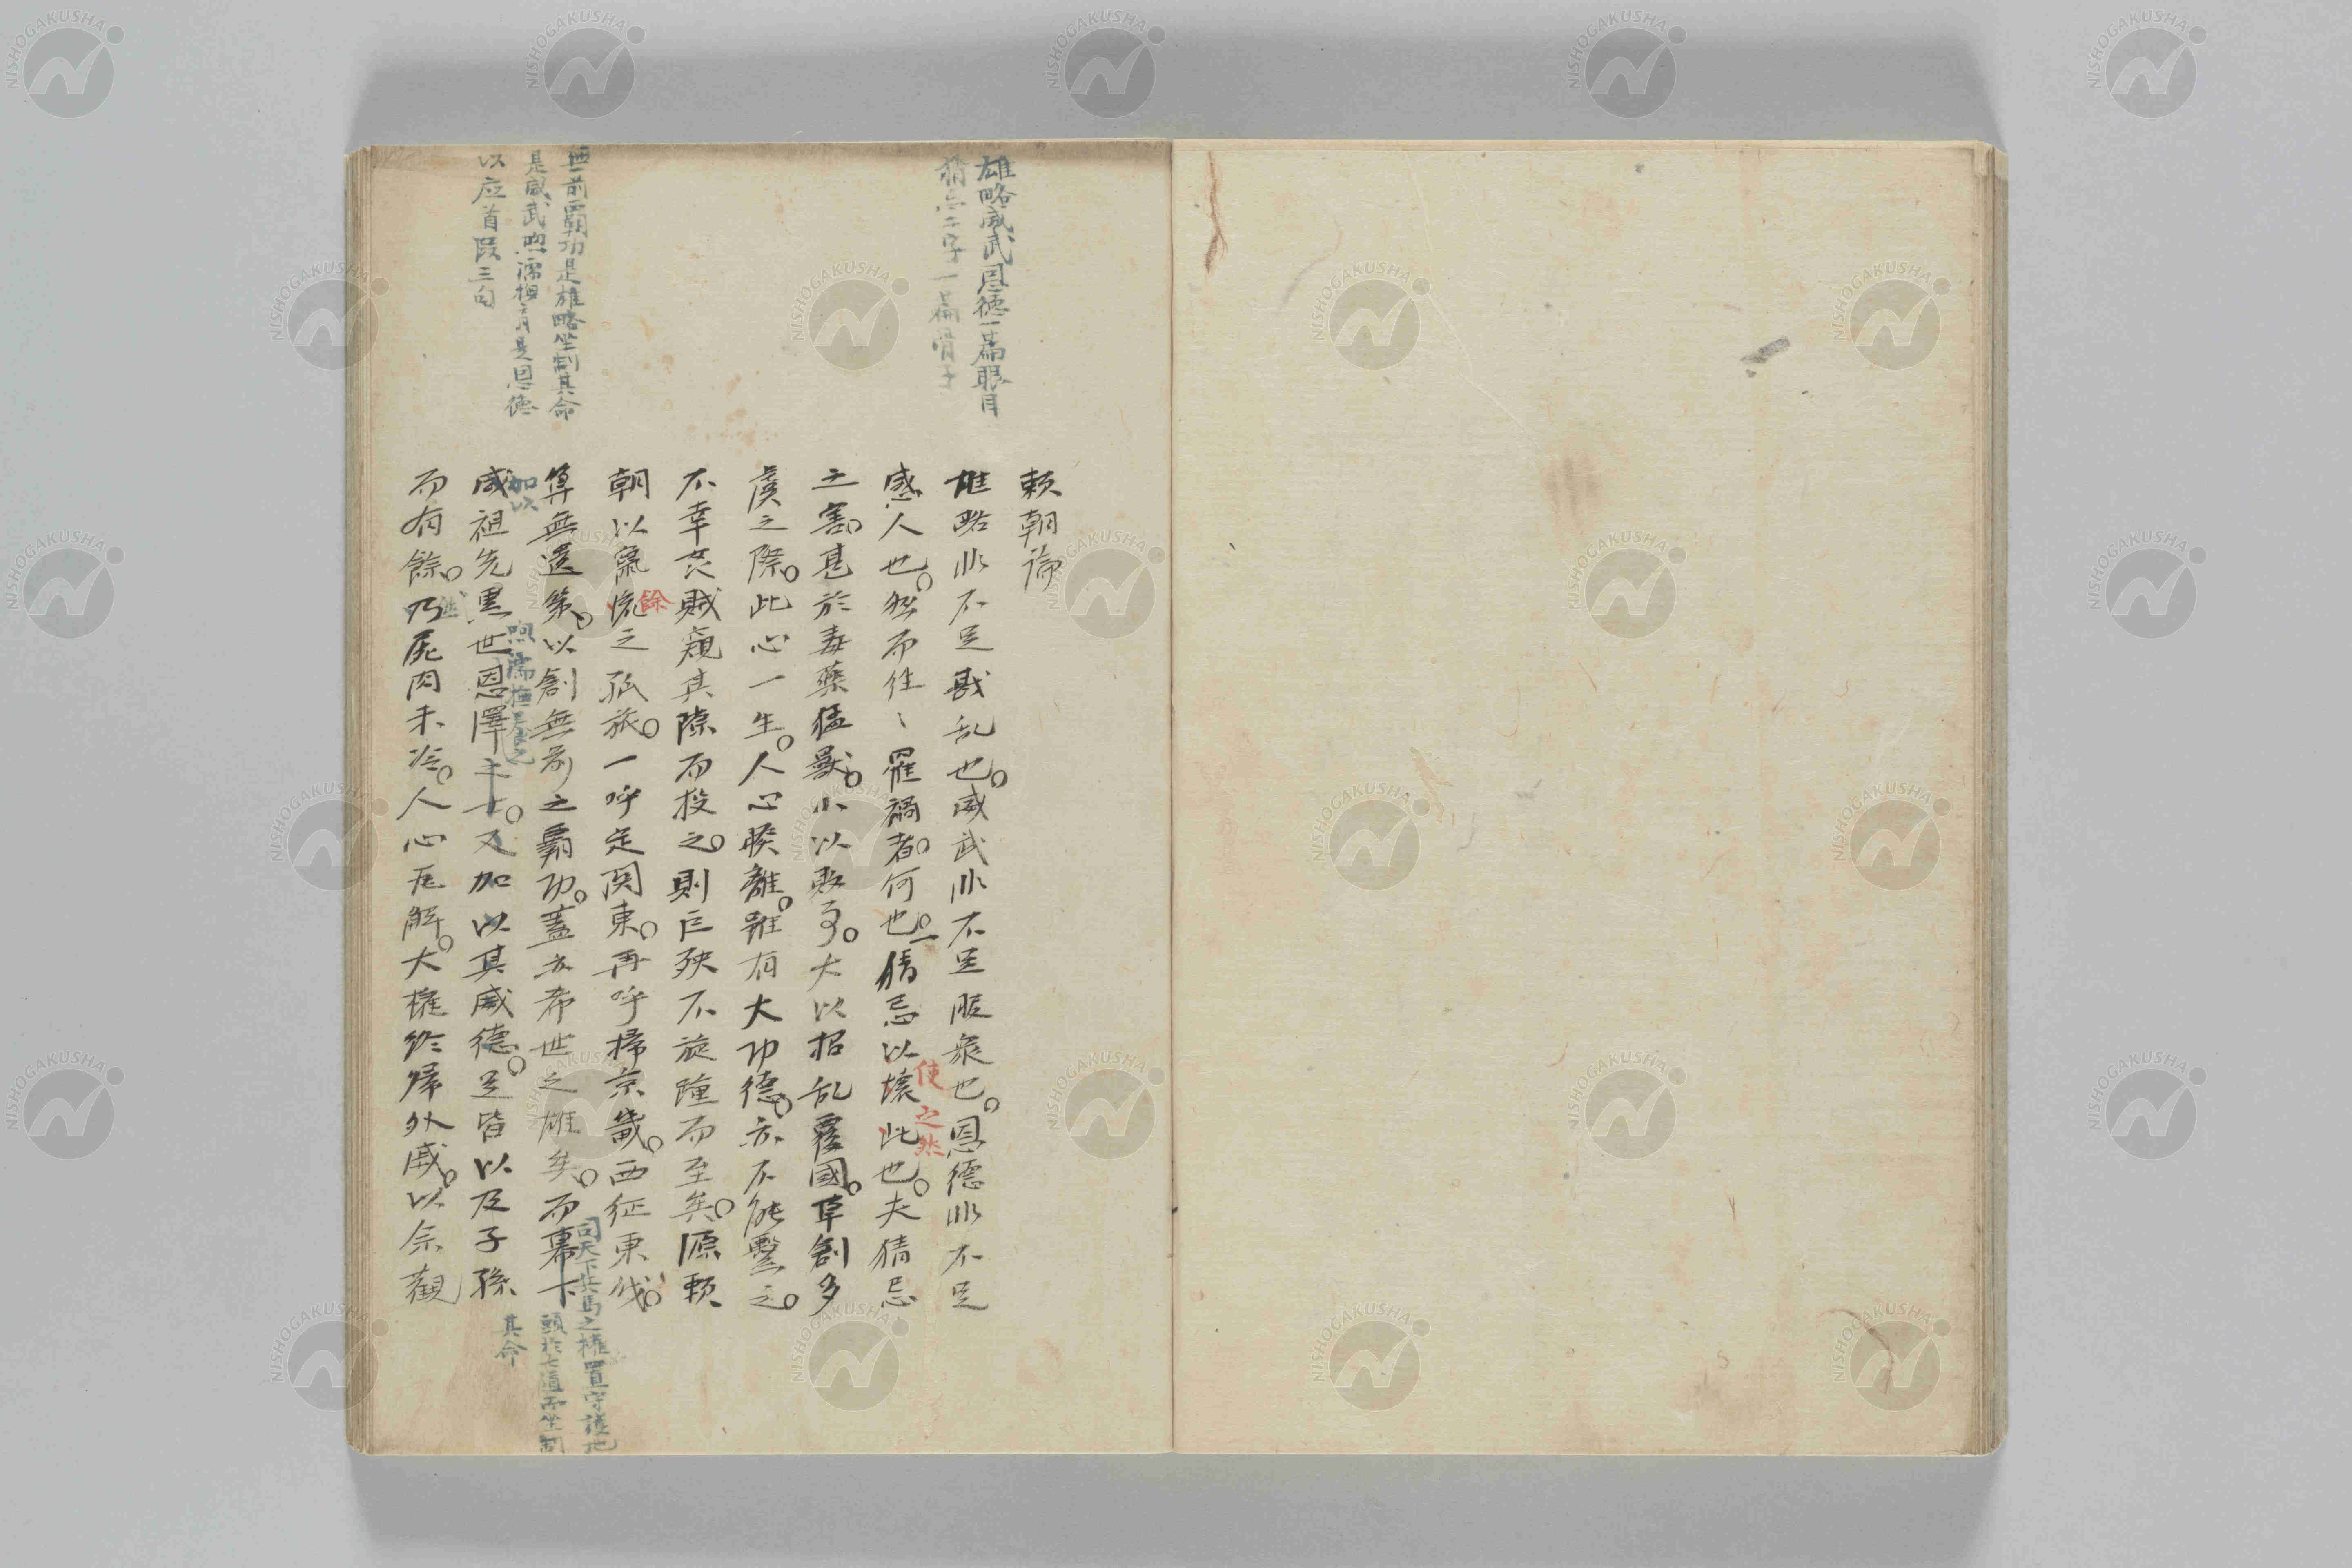 頼朝論
雄略非不足戡乱也。威武非不足服衆也。恩德非不足
感人也。然而往〻罹禍者。何也。猜忌以壞此也。夫猜忌
之害。甚於毒藥猛獸。小以敗事。大以招乱覆國。草創多
虞之際。此心一生。人心睽離。雖有大功德。亦不能繫之。
不幸姦賊窺其隙而投之。則巨殃不旋踵而至矣。源頼
朝以竄流之孤旅。一呼定関東。再呼掃京畿。西征東伐。
算無遺策。以創無前之霸功。蓋亦希世之雄矣。而幕下
咸祖先累世恩澤之士。又加以其威德。足皆以及子孫
而有餘。乃屍肉未冷。人心瓦解。大權終歸外戚。以余觀
雄略威武恩徳一篇眼目
猜忌二字一篇骨子
無前霸功是雄略坐制其命
是威武煦濡撫育是恩徳
以应首段三句
使之然
餘
加以
煦濡撫養之
然
司天下兵馬之權置守護地
頭於七道而坐制
其命
NISHOGAKUSHA